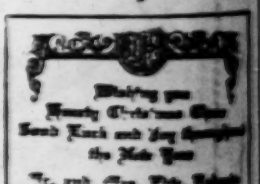 Wishing you
Hearty Christmas Cheer
Good Luck and Joy throughout
the New Year